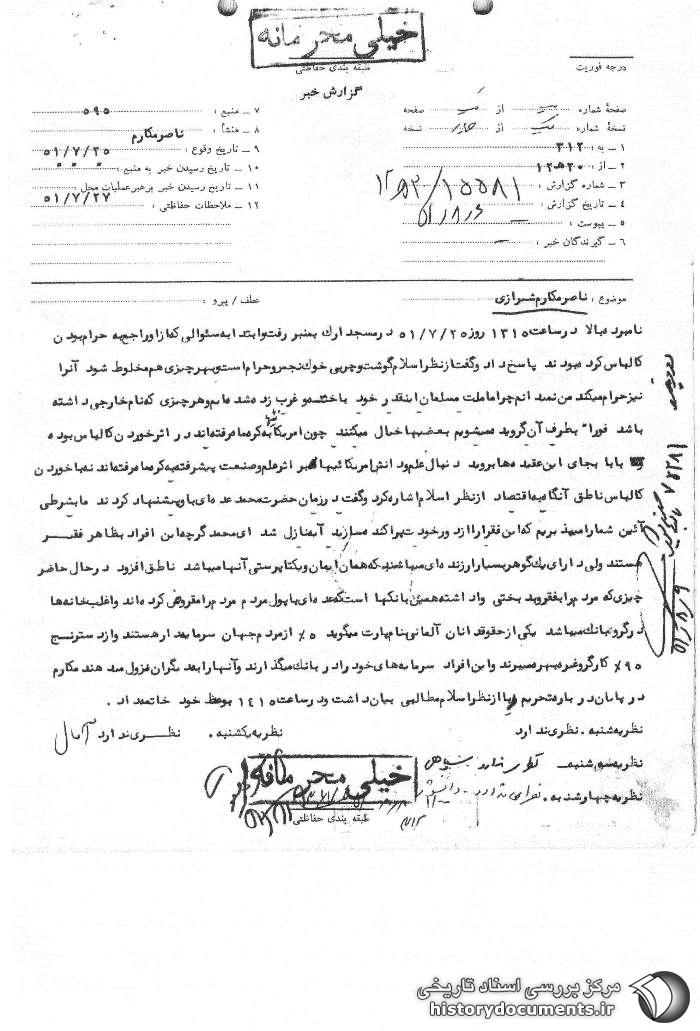 خیلی محرمانه
طبقه بندی حفاظتی
درجه فوریت
گزارش خبر
صفحهٔ شماره از صفحه
نسخهٔ شماره یک از نسخه
۱ ــ به : ۳۱۲
۲ ــ از : ۲۰ هـ ۱۲
۳ ــ شماره گزارش :
۴ ــ تاریخ گزارش :
۵ ــ پیوست :
۶ ــ گیرندگان خبر :
۷ ــ منبع : ۵۹۵
۸ ــ منشأ : ناصر مکارم
۹ ــ تاریخ وقوع : ۵۱/۷/۲۵
۱۰ ــ تاریخ رسیدن خبر به منبع :
۱۱ ــ تاریخ رسیدن خبر برهبر عملیات محل
۱۲ ــ ملاحظات حفاظتی : ۵۱/۷/۲۷
موضوع : ناصر مکارم شیرازی
عطف / پیرو :
نامبرده بالا در ساعت ۱۳۱۵ روز ۵۱/۷/۲۵ در مسجد ارک بمنبر رفت و ابتدا به سئوالی که از او راجع به حرام بودن
کالباس کرده بودند پاسخ داد و گفت از نظر اسلام گوشت و چربی خوک نجس و حرام است و بهر چیزی هم مخلوط شود آنرا
نیز حرام میکند من نمیدانم چرا ما ملت مسلمان اینقدر خود باخته و غرب زده شده ایم و هر چیزی که نام خارجی داشته
باشد فوراً بطرف آن گرویده میشویم بعضیها خیال میکنند چون امریکائیها به کره ماه رفته اند در اثر خوردن کالباس بوده
بابا بجای این عقیده ها بروید دنبال علم و دانش امریکائیها بر اثر علم و صنعت پیشرفته به کره ماه رفته اند نه با خوردن
کالباس ناطق آنگاه به اقتصاد از نظر اسلام اشاره کرد و گفت در زمان حضرت محمد عده ای باو پیشنهاد کردند ما بشرطی
آئین شما را میپذیریم که این فقرا را از دور خود پراکنده سازید آیه نازل شد ای محمد گرچه این افراد بظاهر فقیر
هستند ولی دارای یک گوهر بسیار ارزنده ای میباشند که همان ایمان و یکتا پرستی آنها میباشد ناطق افزود در حال حاضر
چیزی که مردم را بفقر و بدبختی واداشته همین بانکها است که عده ای با پول مردم مردم را مقروض کرده اند و اغلب خانه ها
در گرو بانک میباشد یکی از حقوقدانان آلمانی بنام پارت میگوید ۵٪ از مردم جهان سرمایه دار هستند و از دسترنج
۹۵٪ کارگر و غیره بهره میبرند و این افراد سرمایه های خود را در بانک میگذارند و آنها را بدیگران نزول میدهند مکارم
در پایان درباره تحریم ربا از نظر اسلام مطالبی بیان داشت و در ساعت ۱۴۱۵ بوعظ خود خاتمه داد .
نظریه شنبه . نظری ندارد
نظریه یکشنبه . نظری ندارد آمال
نظریه سه شنبه .
نظریه چهارشنبه . نظری ندارد
خیلی محرمانه
طبقه بندی حفاظتی
مرکز بررسی اسناد تاریخی
historydocuments.ir